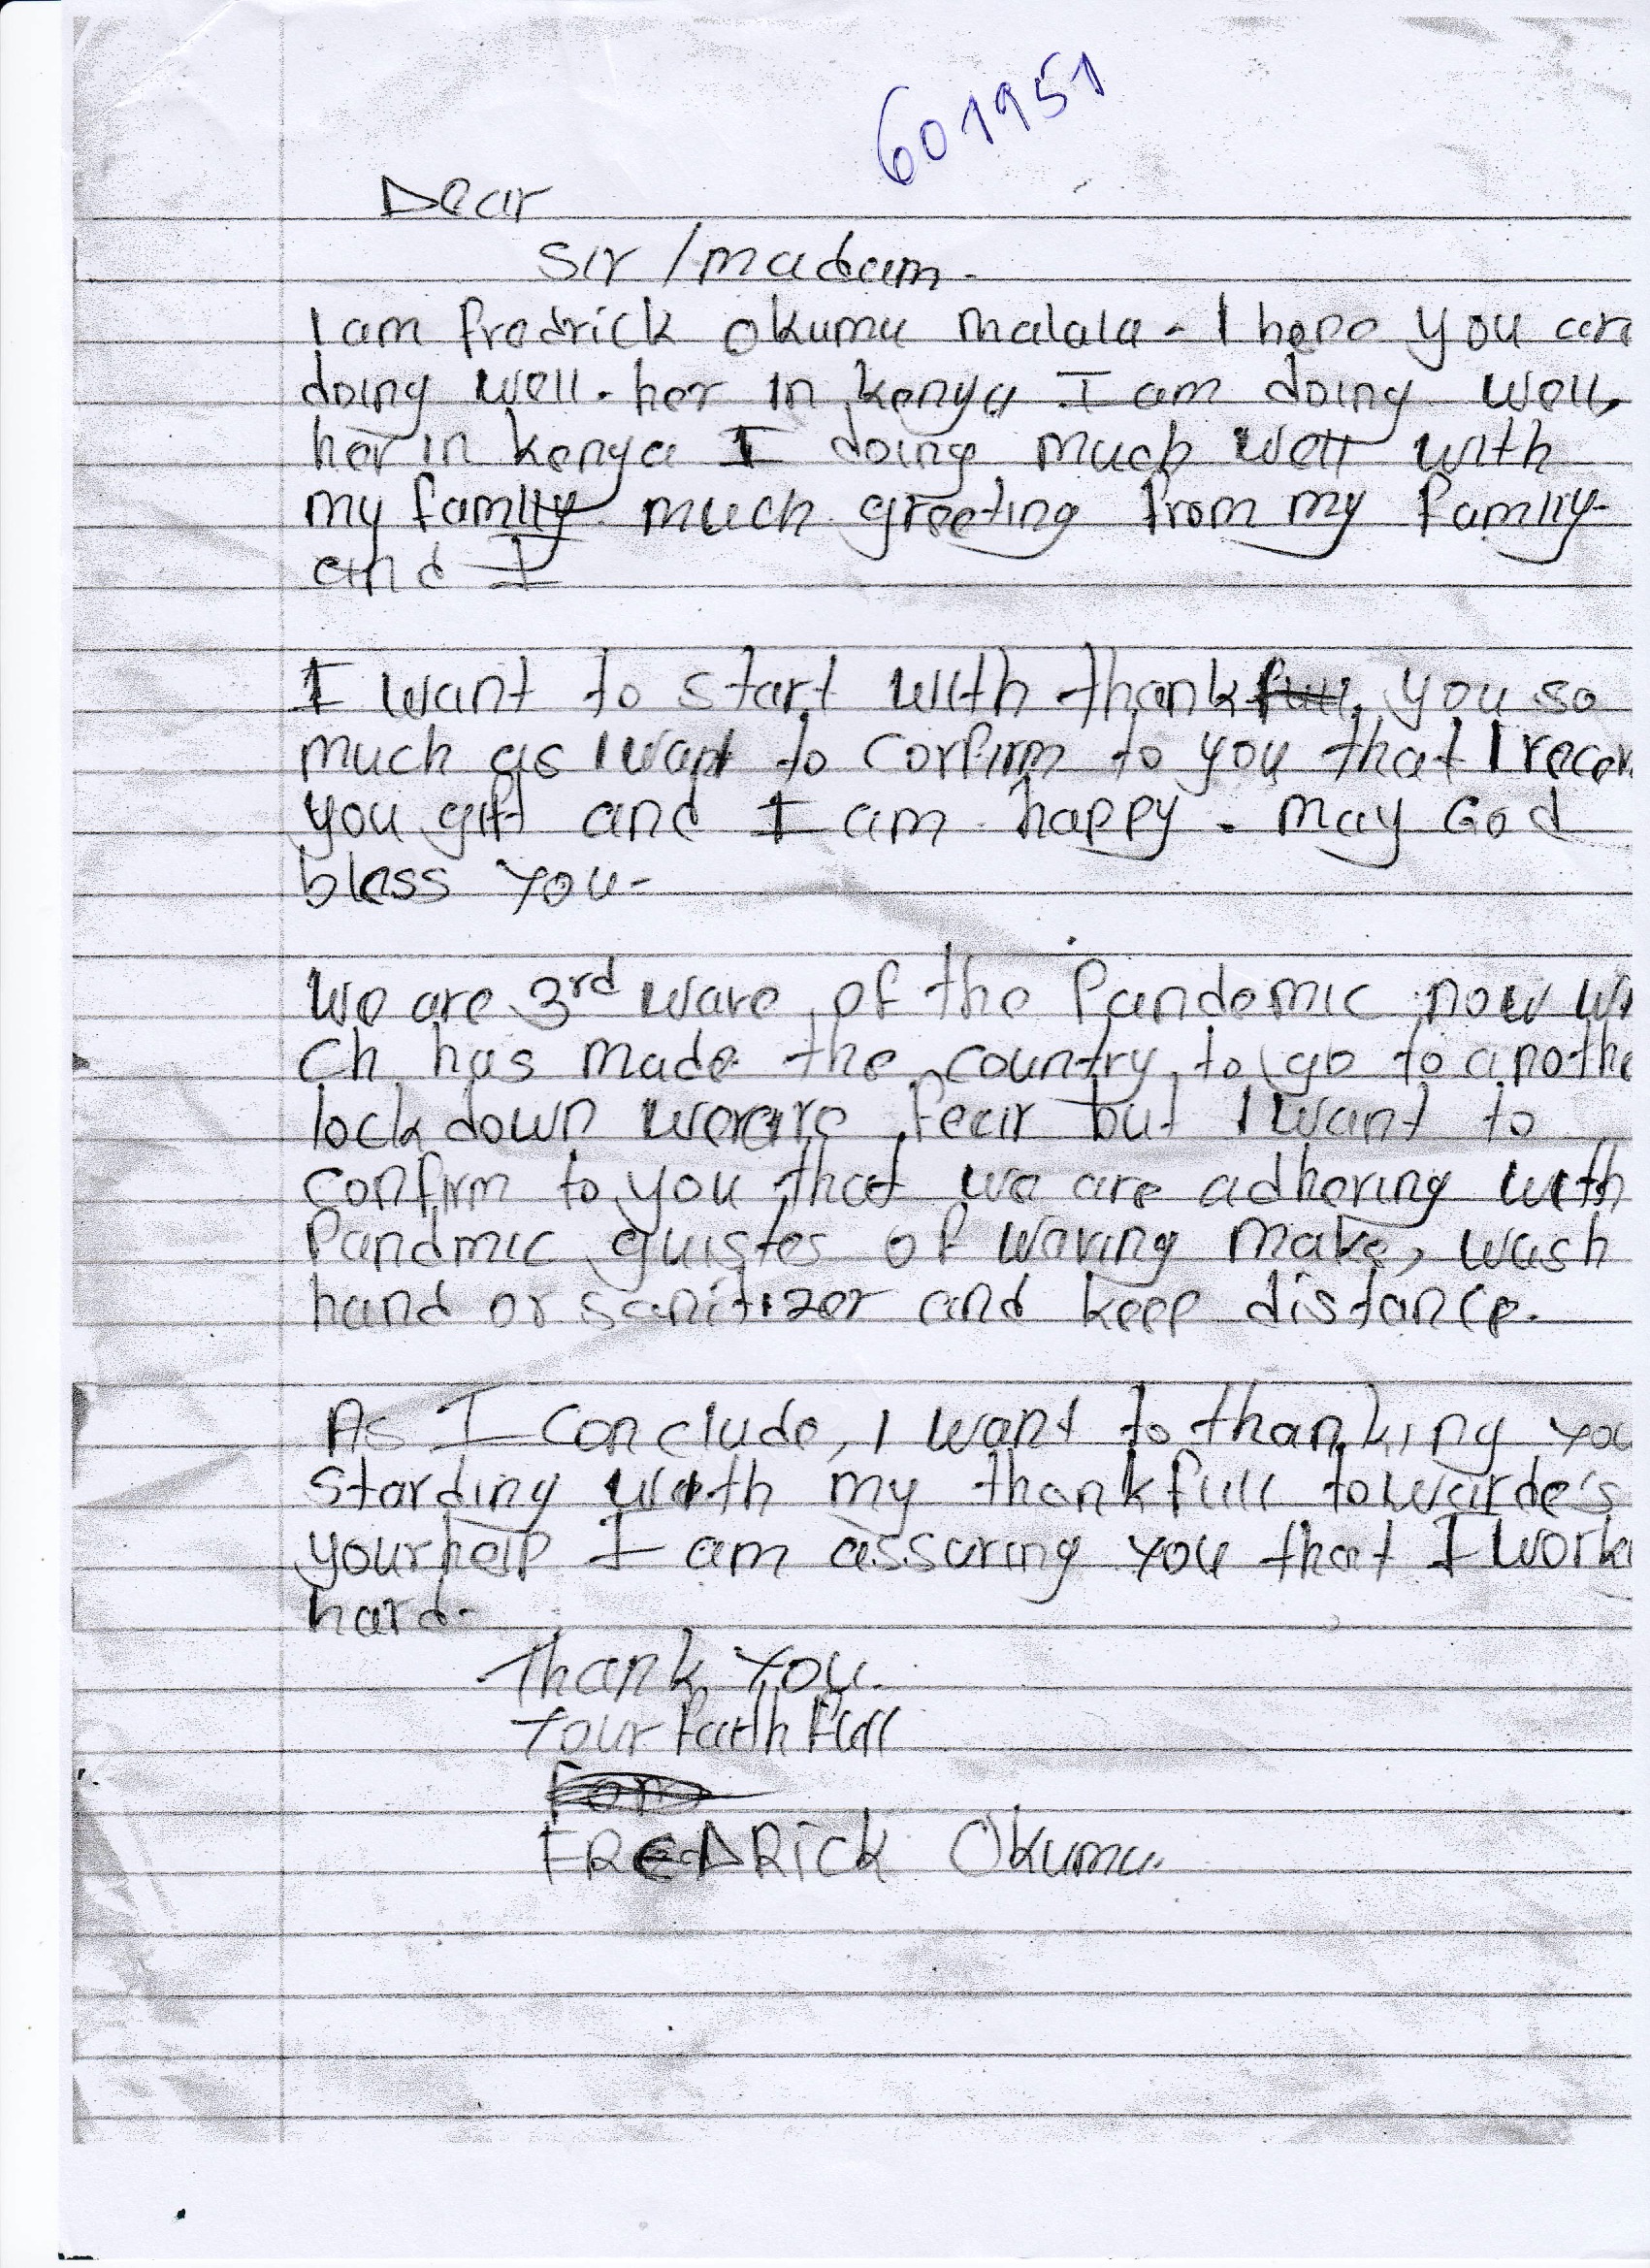 601951
Dear
Sir / madam.
I am fredrick okumu malala. I hope you are
doing well. her in kenya I am doing well,
her in kenya I doing much well with
my family. much greeting from my family
and I
I want to start with thank you so
much as I want to corfirm to you that I recei
you gift and I am happy. may God
bless you.
We are 3rd wave of the pandemic now wi
ch has made the country to go to anothe
lockdown fear but I want to
confirm to you that we are adhering with
Pandmic of waring make, wash
hand or sanitizer and keep distance.
As I conclude, I want to thanking you
starding with my thankfull
your help I am assuring you that I work
hard.
Thank you.
Your faithfull
FREDRICK Okumu.